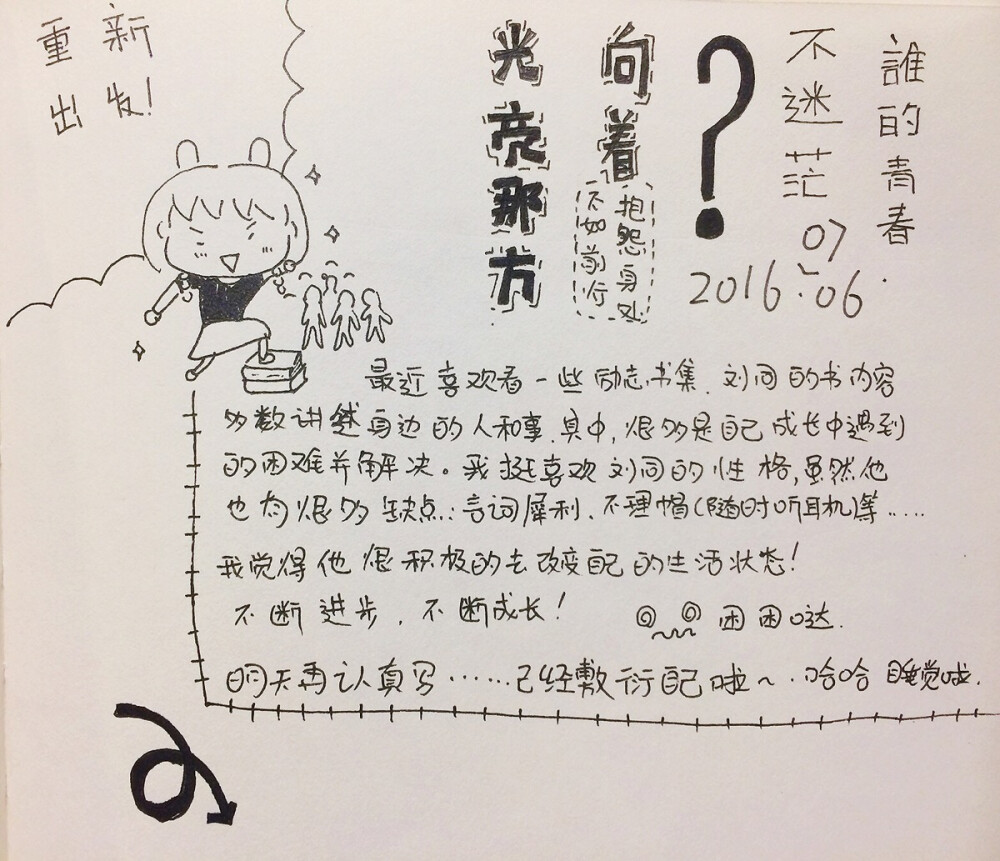 誰的青春
不迷茫
?
2016.06.07
向着
光亮那方
抱怨身处
不如前行
重新
出发!
最近喜欢看一些励志书集.刘同的书内容
多数讲述身边的人和事.其中,很多是自己成长中遇到
的困难并解决。我挺喜欢刘同的性格,虽然他
也有很多缺点:言词犀利、不理帽(随时听耳机)等.....
我觉得他很积极的去改变自己的生活状态!
不断进步,不断成长!
困困哒.
明天再认真写......已经敷衍自己啦~.哈哈 睡觉啦.